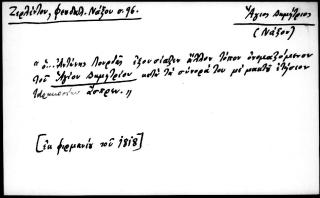 Ζερλέντου, Φεουδαλ. Νάξου σ. 96.
Ἅγιος Δημήτριος
(Νάξου)
"ὁ... Ἀντώνης Λουρδᾶς ἐξουσίαζεν ἄλλον τόπον ὀνομαζόμενον
τοῦ Ἁγίου Δημητρίου κατὰ τὰ σύνορά του μὲ μακτὺ ἐτήσιον
ἄσπρων."
[ἐκ φιρμανίου τοῦ 1818]